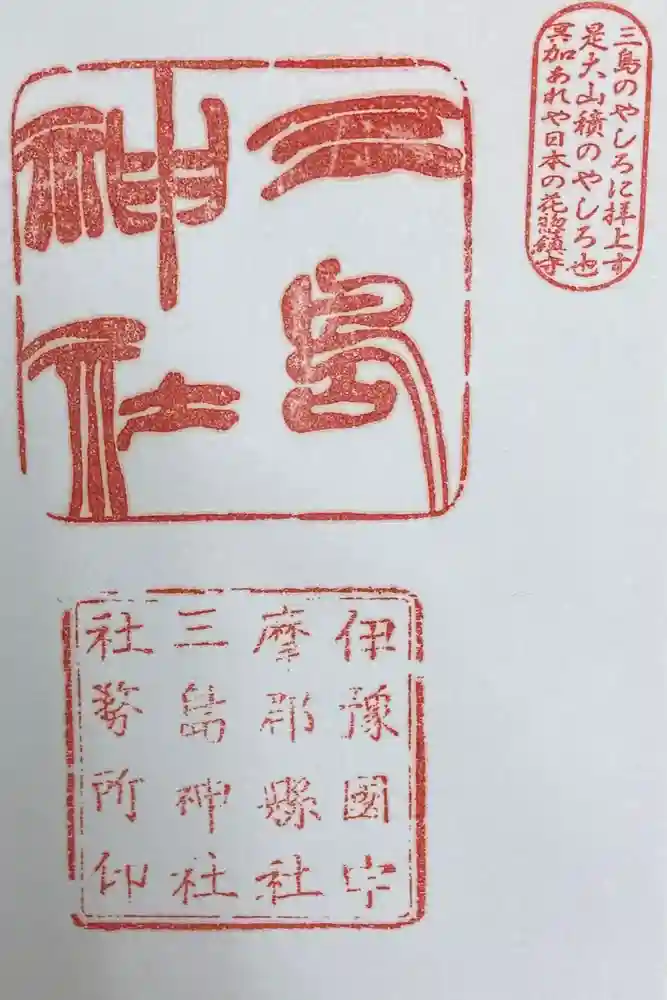 三島のやしろに拝上す
是大山積のやしろ也
冥加あれや日本の花惣鎮守
三島
神社
伊豫國宇
摩郡縣社
三島神社
社務所印